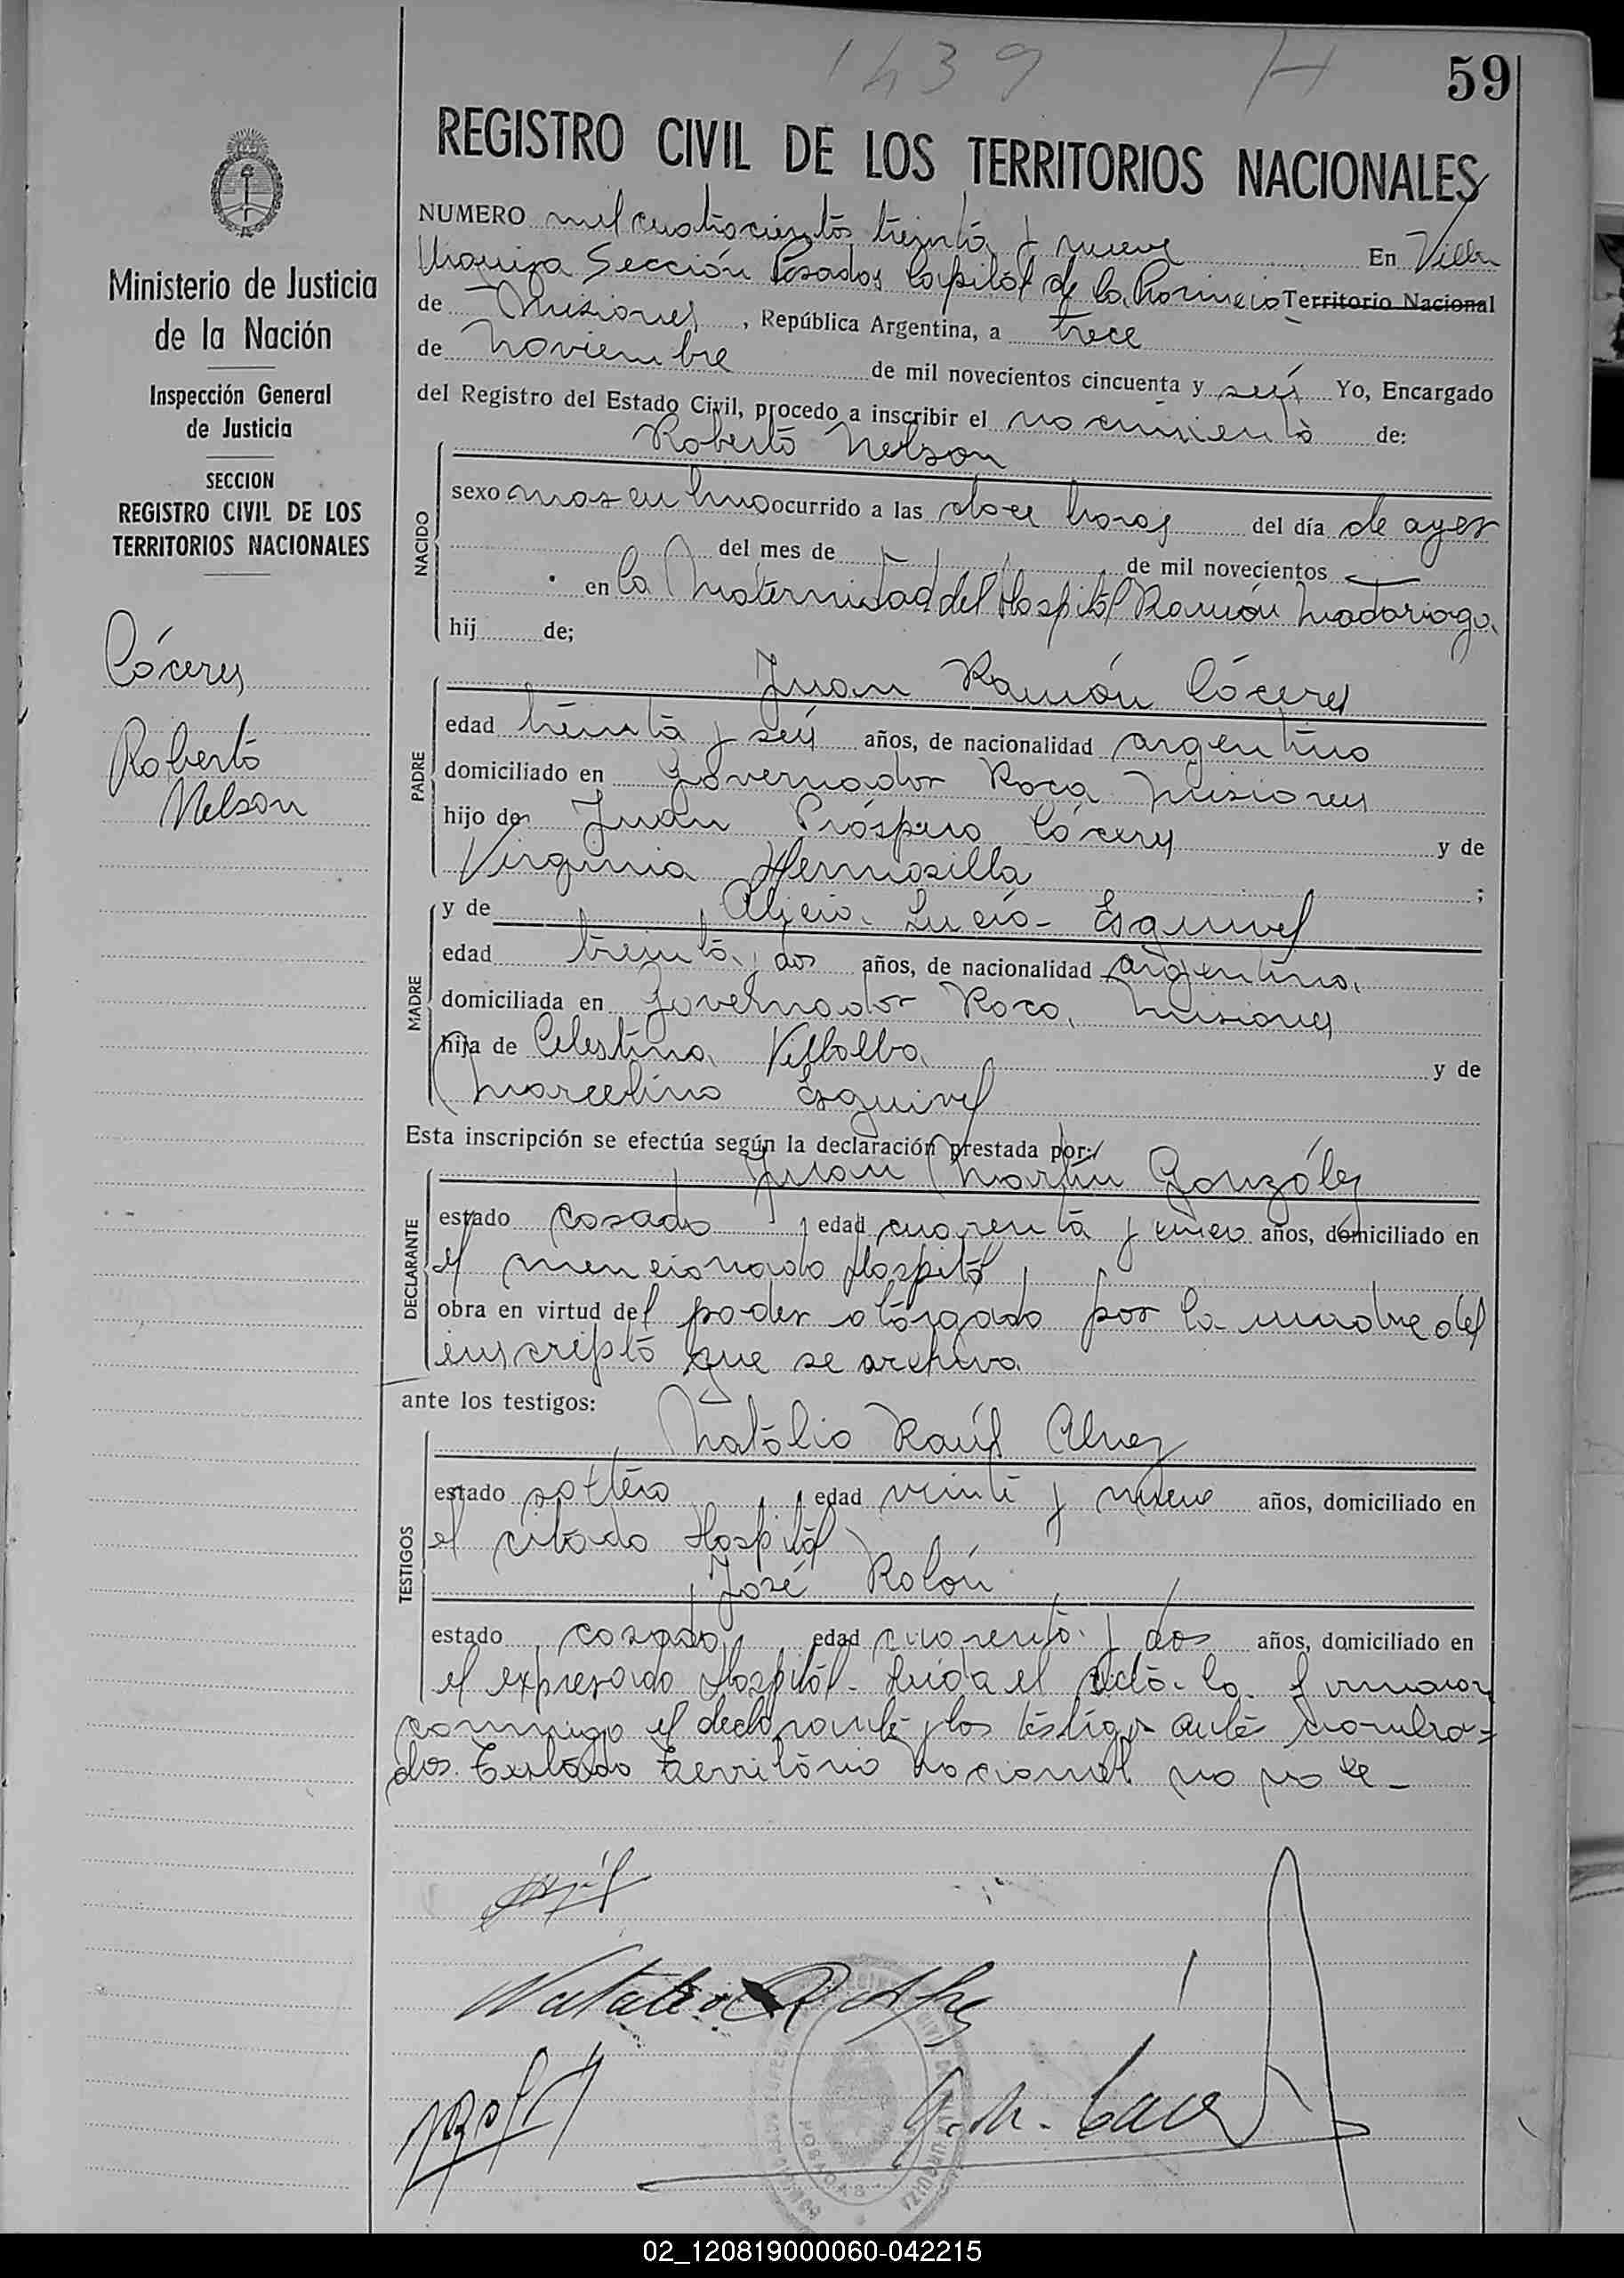 1439 H 59
REGISTRO CIVIL DE LOS TERRITORIOS NACIONALES
NUMERO mil cuatrocientos treinta y nueve En Villa
Urquiza Sección Posadas Capital de la Provincia Territorio Nacional
de Misiones, República Argentina, a trece
de Noviembre de mil novecientos cincuenta y seis Yo, Encargado
del Registro del Estado Civil, procedo a inscribir el nacimiento de:
NACIDO
Roberto Nelson
sexo masculino ocurrido a las doce horas del día de ayer
del mes de de mil novecientos
en la Maternidad del Hospital Ramón Madariaga.
hij de;
PADRE
Juan Ramón Cáceres
edad treinta y seis años, de nacionalidad argentino
domiciliado en Governador Roca Misiones
hijo de Juan Próspero Cáceres y de
Virginia Hermosilla ;
MADRE
y de Alicia Lucia Esquivel
edad treinta y dos años, de nacionalidad argentina.
domiciliada en Governador Roca, Misiones
hija de Celestina Villalba y de
Marcelino Esquivel
Esta inscripción se efectúa según la declaración prestada por:
DECLARANTE
Juan Martín González
estado casado edad cuarenta y cinco años, domiciliado en
el mencionado Hospital
obra en virtud del poder otorgado por la madre del
inscripto que se archiva.
ante los testigos:
TESTIGOS
Natalio Raúl Alvez
estado soltero edad veinte y nueve años, domiciliado en
el citado Hospital
José Rolón
estado casado edad cuarenta y dos años, domiciliado en
el expresado Hospital. Leida el acta la firmaron
conmigo el declarante y los testigos antes nombra=
dos. Testado Territorio Nacional no vale
Ministerio de Justicia
de la Nación
Inspección General
de Justicia
SECCION
REGISTRO CIVIL DE LOS
TERRITORIOS NACIONALES
Cáceres
Roberto
Nelson
02_120819000060-042215